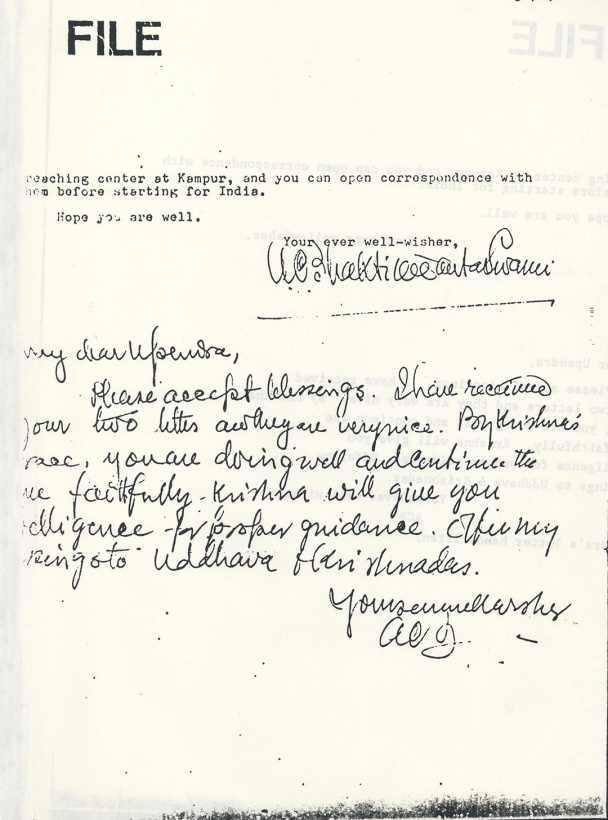 FILE
reaching center at Kampur, and you can open correspondence with
hem before starting for India.
Hope you are well.
Your ever well-wisher,
A.C. Bhaktivedanta Swami
my dear Upendra,
Please accept blessings. I have received
your two letters and they are very nice. By Krishna's
race, you are doing well and continue the
me faithfully. Krishna will give you
elligence for proper guidance. Offer my
ssings to Uddhava & Krishnadas.
Your ever well wisher
ACB